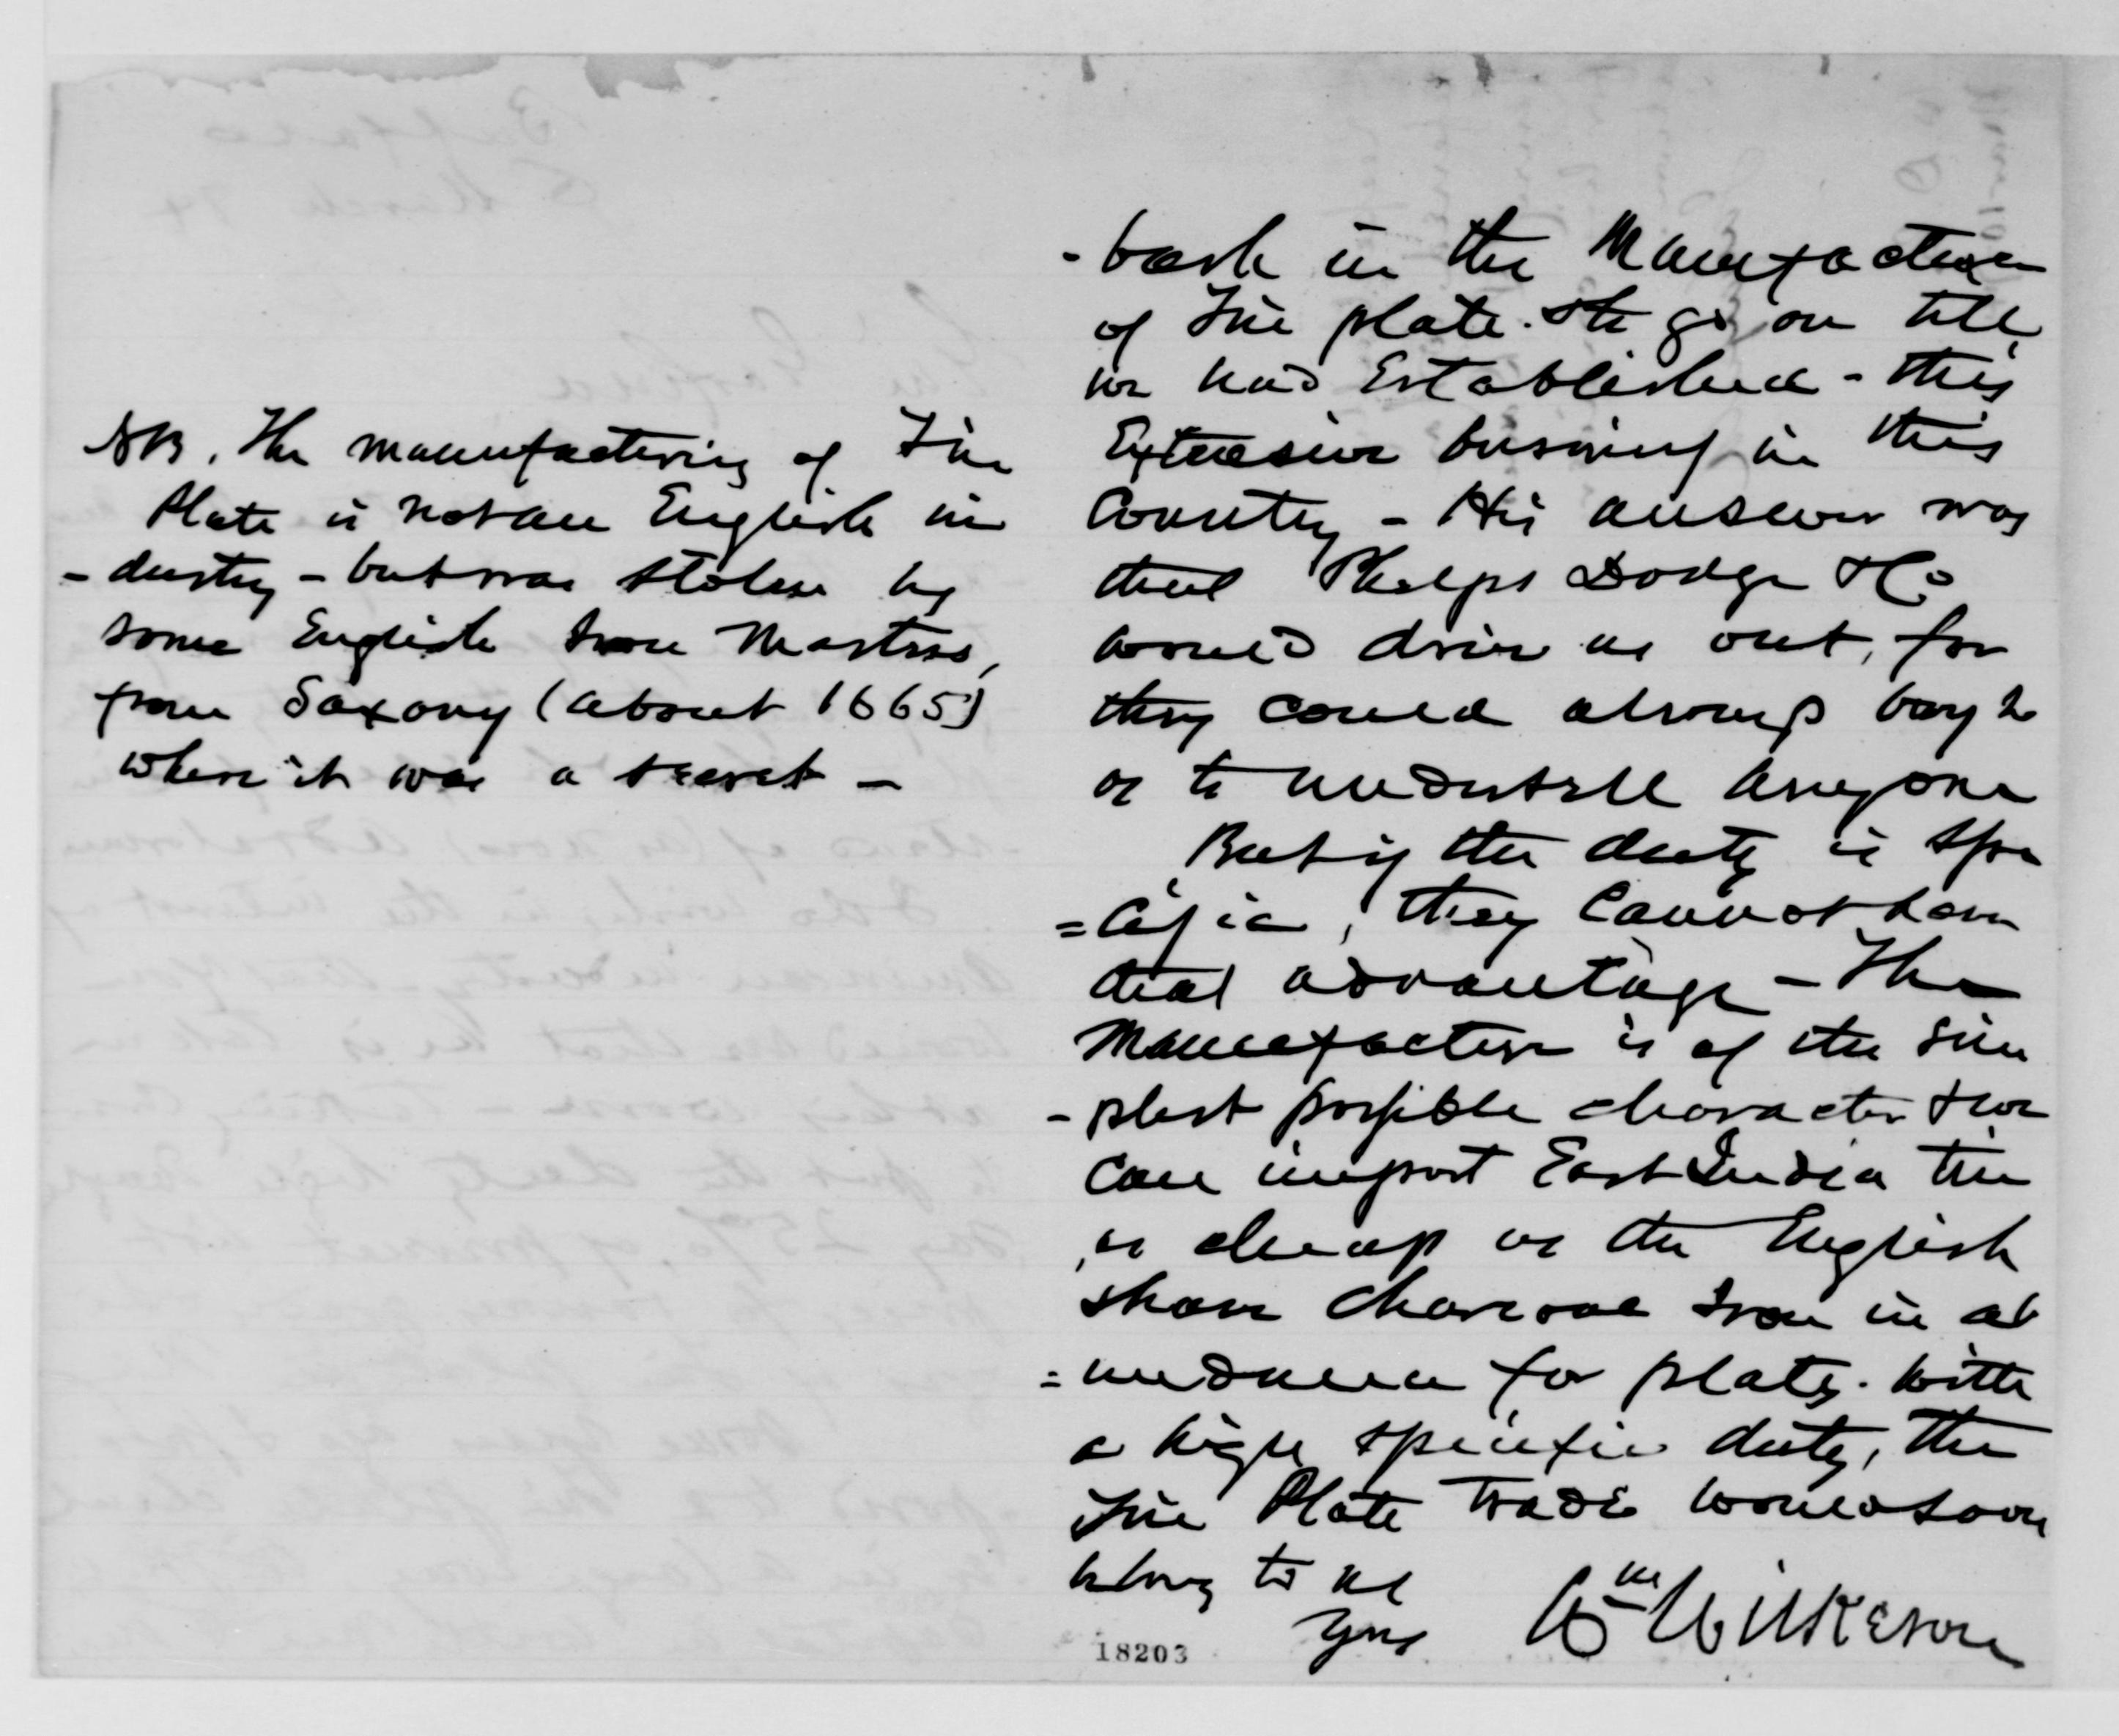 NB. The manufacturing of Tin
Plate is not an English in
-dustry - but was stolen by
some English Iron Masters,
from Saxony (about 1665)
where it was a secret -
-bark in the Manufacture
of Tin plate. & to go on till
we had Established - this
Extensive business in this
Country - His answer was
that Phelps Dodge & Co
would drive us out, for
they could always buy so
as to undersell anyone
But if the duty is spe
=cific, they Cannot have
that advantage - The
Manufacture is of the sim
-plest possible character & we
Can import East India tin
as cheap as the English
& have Charcoal Iron in ab
=undance for plates. With
a high specific duty, the
Tin Plate trade would soon
belong to us
Yours Wm Wilkeson
18203